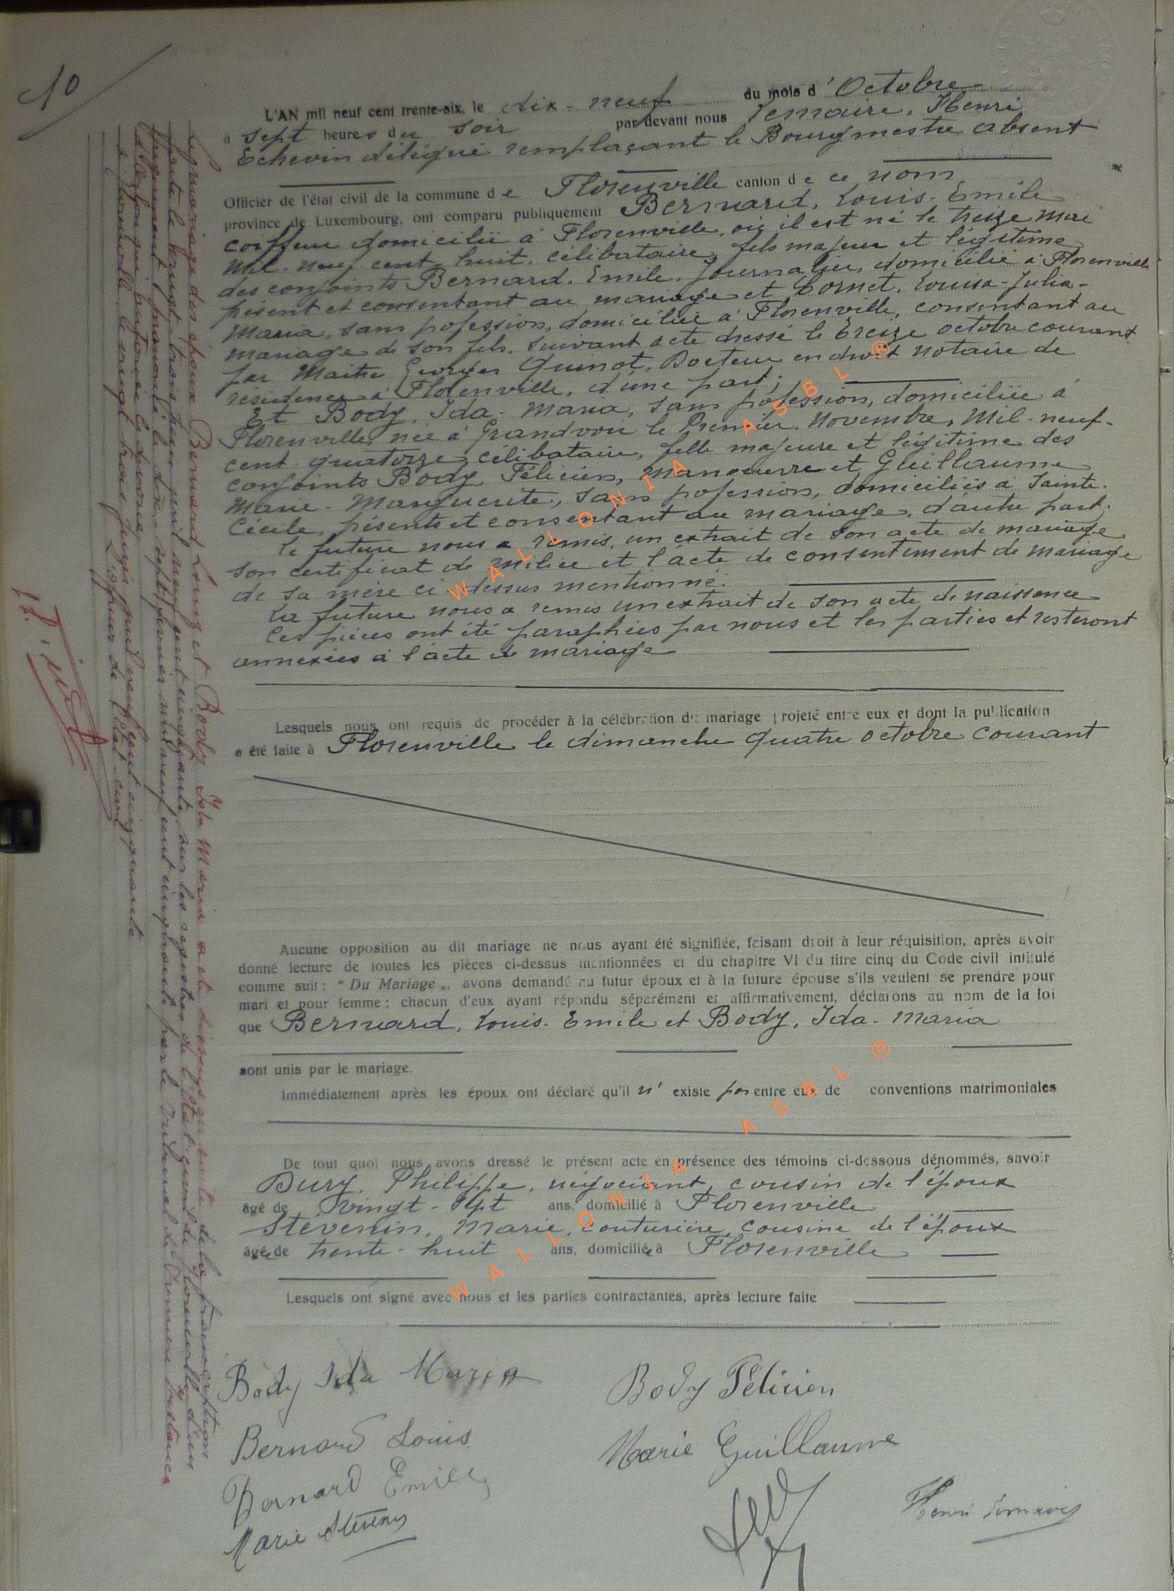 10
L'AN mil neuf cent trente-six, le dix-neuf du mois d'Octobre
à sept heures du soir par devant nous Lemaire, Henri
Echevin délégué remplaçant le Bourgmestre absent
Officier de l'état civil de la commune de Florenville canton de ce nom
province de Luxembourg, ont comparu publiquement Bernard, Louis-Emile
coiffeur domicilié à Florenville, où il est né le treize mai
mil-neuf-cent huit, célibataire, fils majeur et légitime
des conjoints Bernard, Emile, journalier, domicilié à Florenville
présent et consentant au mariage et Cornet, Louisa-Julia-
Maria, sans profession, domiciliée à Florenville, consentant au
mariage de son fils, suivant acte dressé le treize octobre courant
par Maître Georges Guinot, Docteur en droit notaire de
résidence à Florenville, d'une part;
Et Body, Ida-Maria, sans profession, domiciliée à
Florenville née à Grandvoir le Premier Novembre, Mil-neuf-
cent quatorze, célibataire, fille majeure et légitime des
conjoints Body Félicien, manoeuvre et Guillaume
Marie-Marguerite, sans profession, domiciliés à Sainte-
Cécile, présents et consentant au mariage, d'autre part.
Le future nous a remis, un extrait de son acte de mariage
son certificat de milice et l'acte de consentement de mariage
de sa mère ci dessus mentionné.
La future nous a remis un extrait de son acte de naissance
Ces pièces ont été paraphées par nous et les parties et resteront
annexées à l'acte de mariage
Lesquels nous ont requis de procéder à la célébration du mariage projeté entre eux et dont la publication
a été faite à Florenville le dimanche quatre octobre courant
Aucune opposition au dit mariage ne nous ayant été signifiée, faisant droit à leur réquisition, après avoir
donné lecture de toutes les pièces ci-dessus mentionnées et du chapitre VI du titre cinq du Code civil intitulé
comme suit: "Du Mariage", avons demandé au futur époux et à la future épouse s'ils veulent se prendre pour
mari et pour femme; chacun d'eux ayant répondu séparément et affirmativement, déclarons au nom de la loi
que Bernard, Louis-Emile et Body, Ida-Maria
sont unis par le mariage.
Immédiatement après les époux ont déclaré qu'il n'existe pas entre eux de conventions matrimoniales
De tout quoi nous avons dressé le présent acte en présence des témoins ci-dessous dénommés, savoir
Bury, Philippe, négociant, cousin de l'époux
âgé de vingt-sept ans, domicilié à Florenville
Stévenin, Marie, couturière, cousine de l'époux
âgée de trente-huit ans, domiciliée à Florenville
Lesquels ont signé avec nous et les parties contractantes, après lecture faite
Body Ida Maria
Body Félicien
Bernard Louis
Marie Guillaume
Bernard Emile
Marie Stévenin
Henri Lemaire
Le mariage des époux Bernard Louis et Body Ida Maria a été dissous ensuite de la transcription
faite le vingt trois juin mil neuf cent cinquante, sur les registres de l'état-civil de Florenville d'un
jugement prononcé le dix septembre mil neuf cent quarante par le Tribunal de Première Instance
d'Arlon qui autorise le divorce
à Florenville, le vingt trois juin mil neuf cent cinquante
L'officier de l'état-civil
WALLONIA ASBL ®
WALLONIA ASBL ®